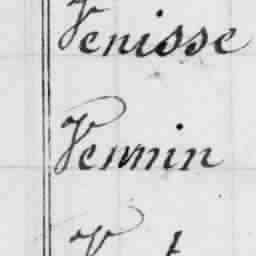 Venisse
Vennin